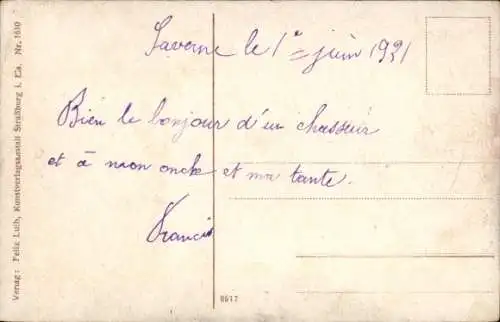 Saverne le 1er juin 1921
Bien le bonjour d'un chasseur
et à mon oncle et ma tante.
Francis
Verlag: Felix Luib, Kunstverlagsanstalt Straßburg i. Els. Nr. 1610
8617